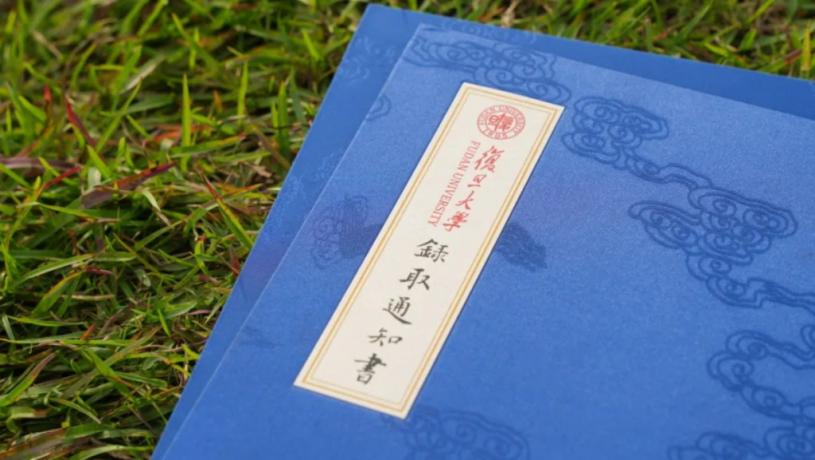 復旦大學
FUDAN UNIVERSITY
錄取通知書